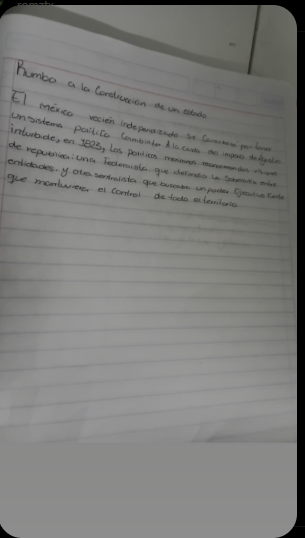 Rumbo a la Construcción de un estado
El México recién independizado se por
un sistema político Cambiante. A la caida del imperio de Agustin
Iturbide, en 1823, Los politicos mexicanos visiones
de republica: una federalista que defendia la Soberania entre
entidades. y otra centralista que buscaba un poder Ejecutivo fuerte
que mantuviera el control de todo el territorio